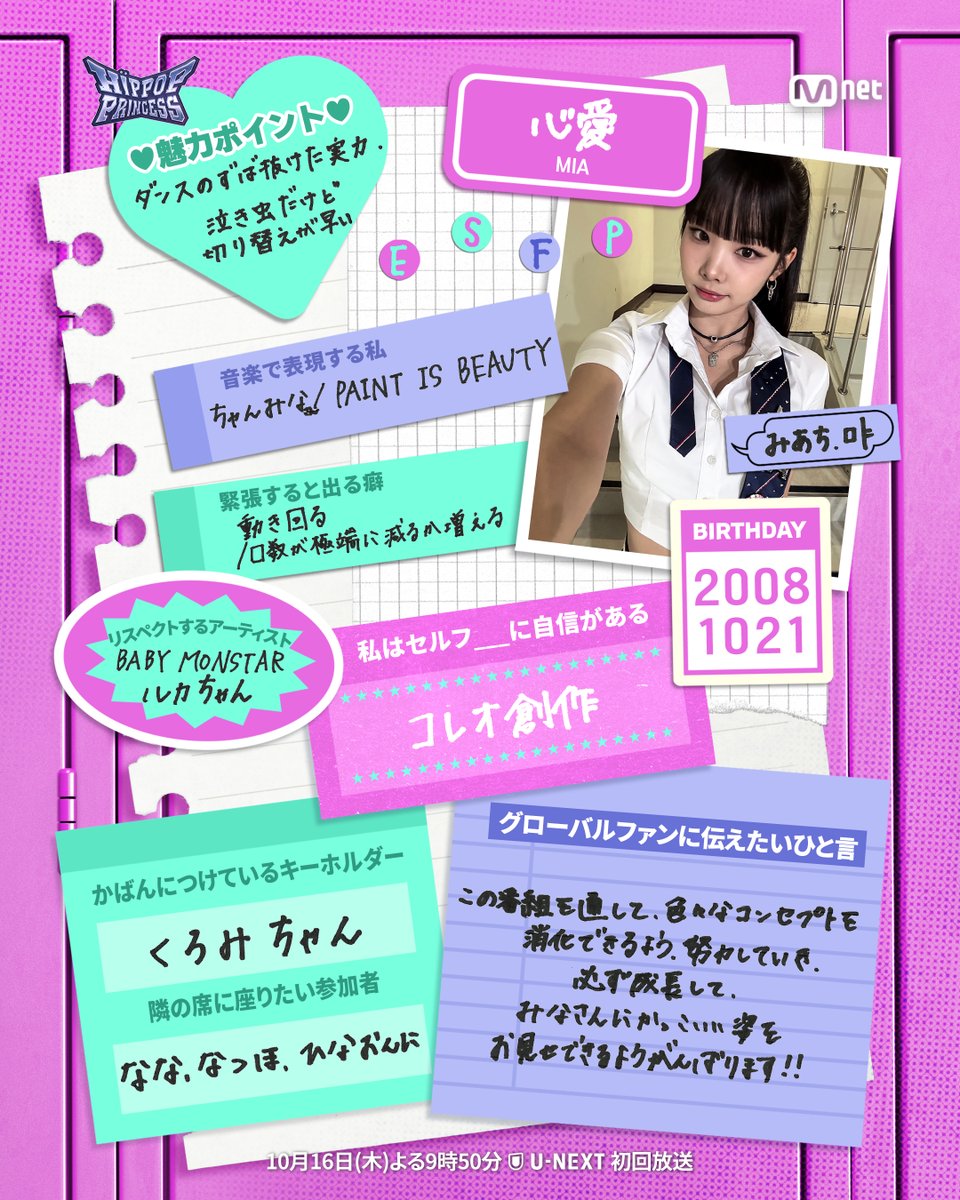 HIPPOP
PRINCESS
♥魅力ポイント♥
ダンスのずば抜けた実力.
泣き虫だけど
切り替えが早い
心愛
MIA
M net
E S F P
音楽で表現する私
ちゃんみな PAINT IS BEAUTY
みあち.
緊張すると出る癖
動き回る
/口数が極端に減るか増える
BIRTHDAY
2008
1021
リスペクトするアーティスト
BABY MONSTAR
ルカちゃん
私はセルフ__に自信がある
コレオ創作
かばんにつけているキーホルダー
くろみちゃん
隣の席に座りたい参加者
なな, なつほ, ひなおんに
グローバルファンに伝えたいひと言
この番組を通して、色々なコンセプトを
消化できるよう、努力していき、
必ず成長して、
みなさんにかっこいい姿を
お見せできるようがんばります!!
10月16日(木)よる9時50分 U-NEXT 初回放送